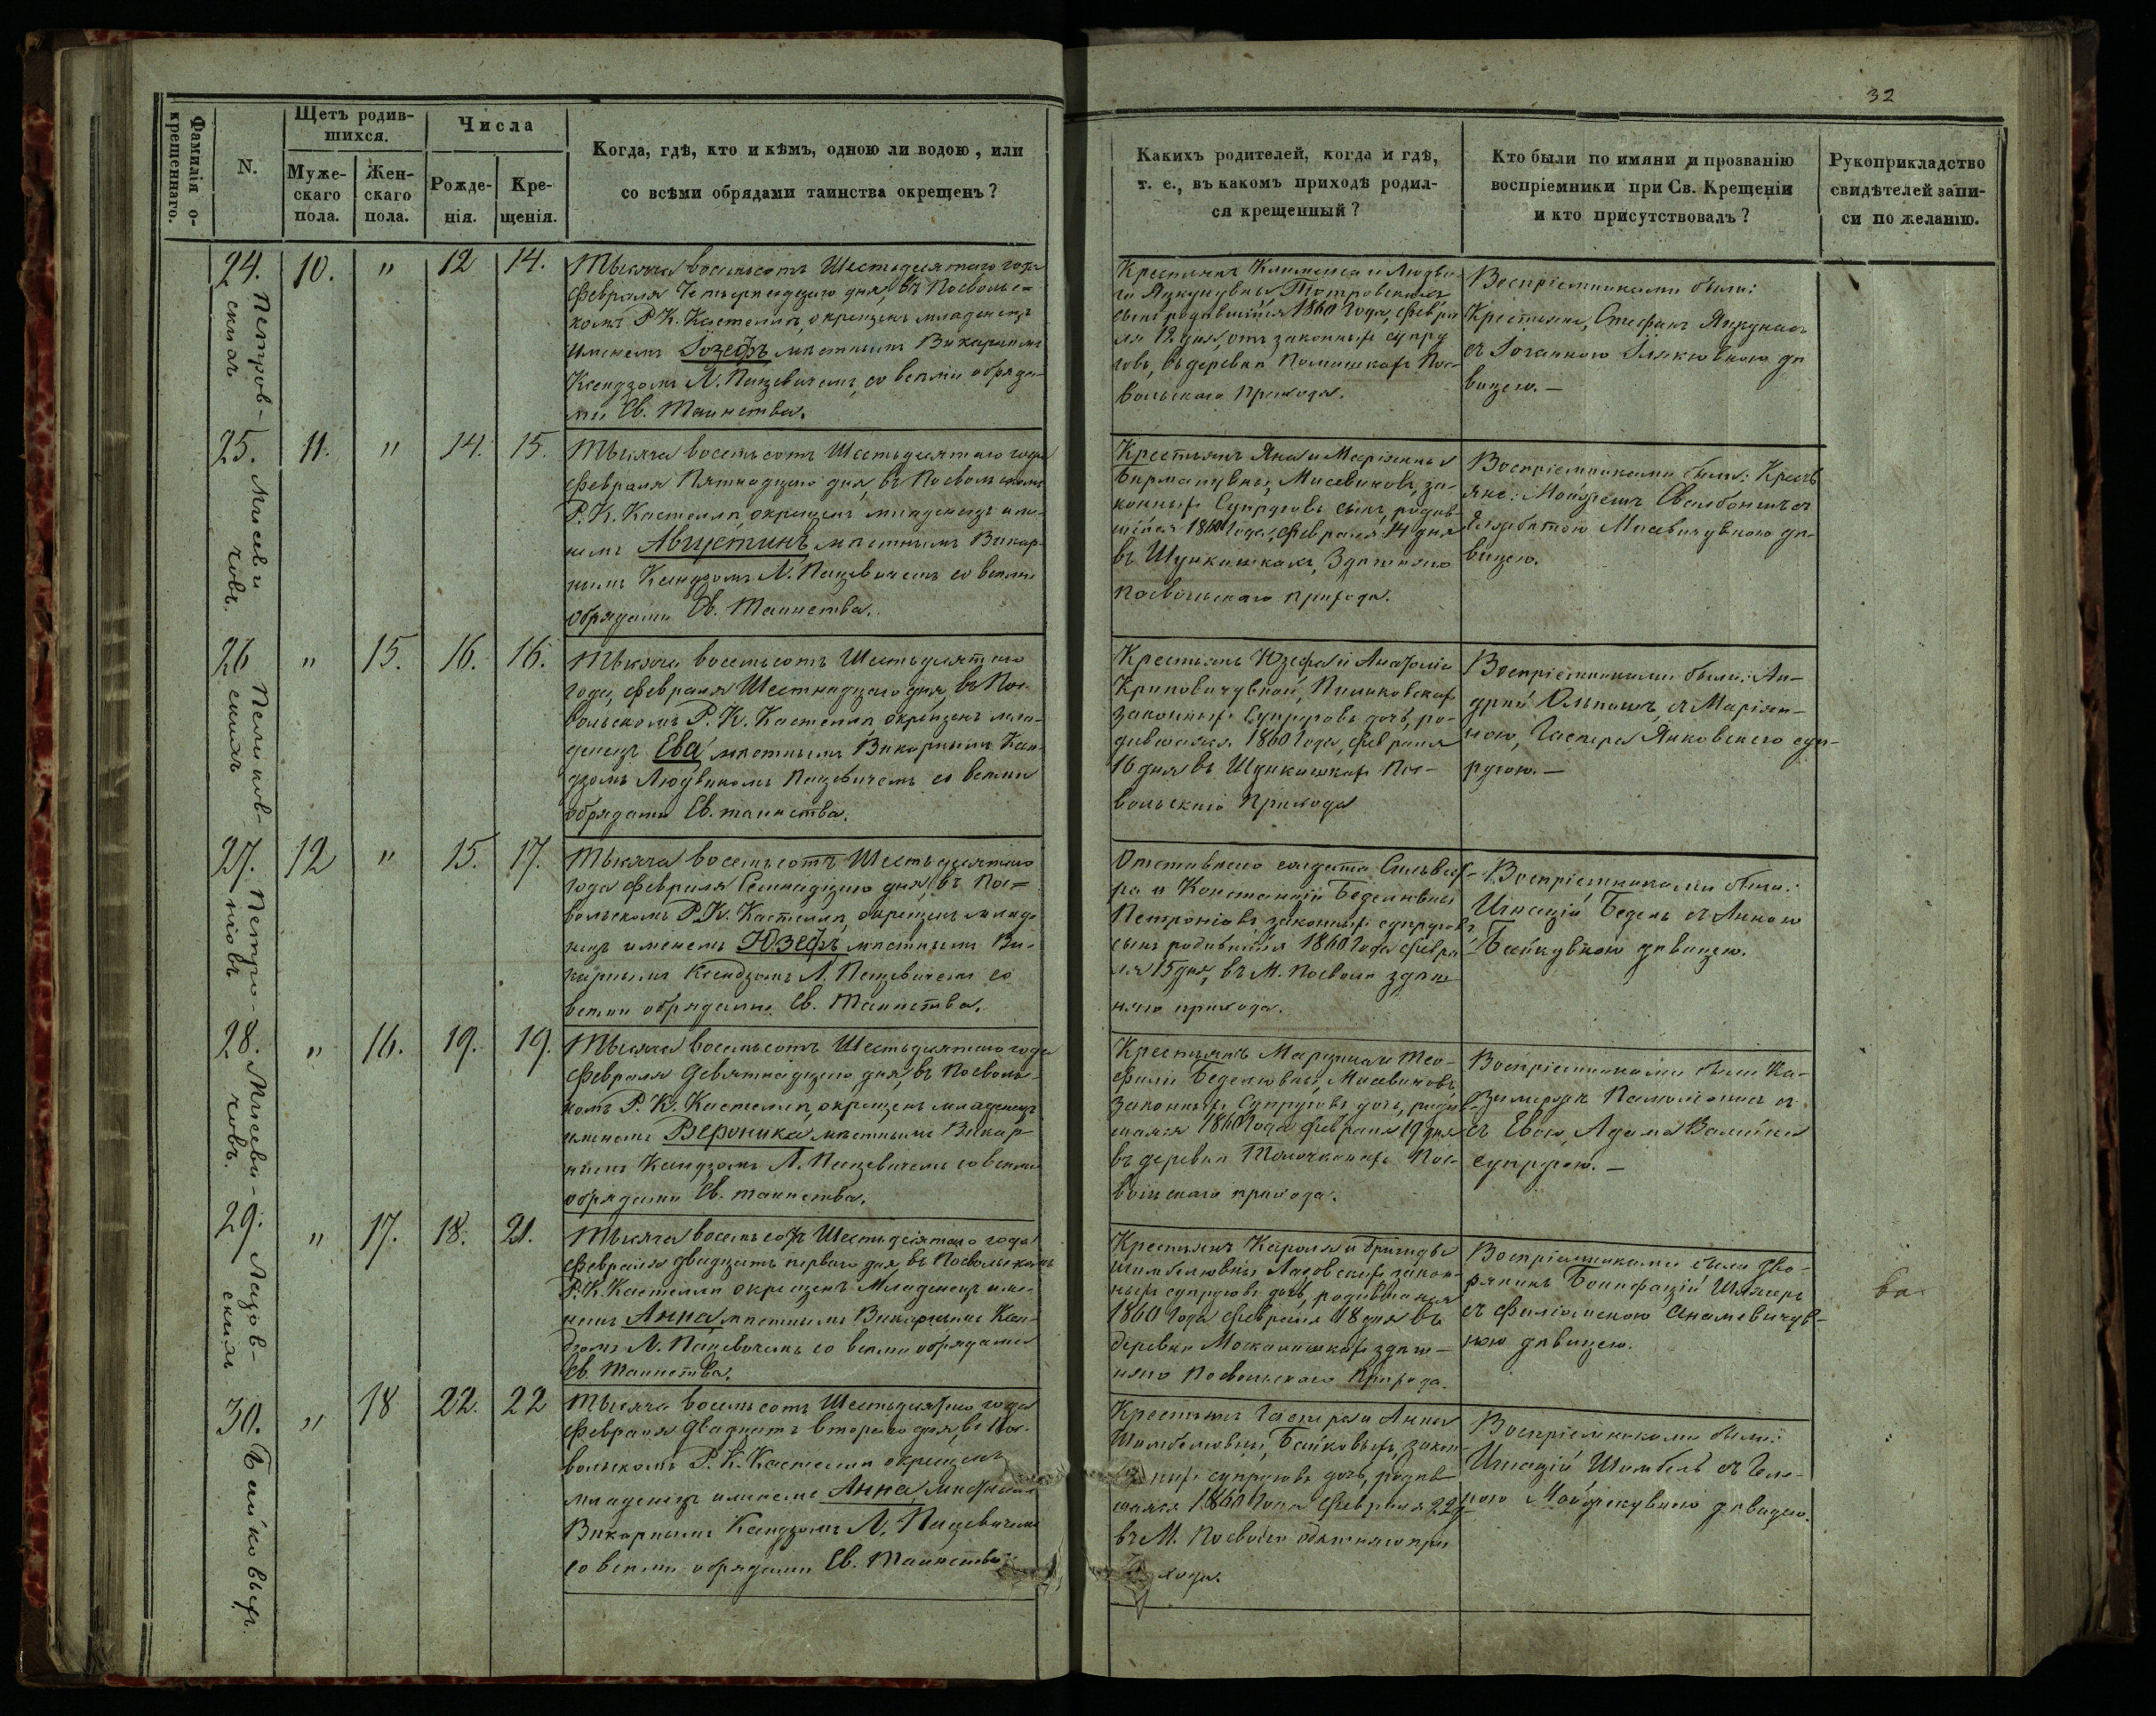 32
Фамилія о-
крещеннаго.
N.
Щетъ родив-
шихся.
Муже-
скаго
пола.
Жен-
скаго
пола.
Числа
Рожде-
нія.
Кре-
щенія.
Когда, гдѣ, кто и кѣмъ, одною ли водою, или
со всѣми обрядами таинства окрещенъ?
Какихъ родителей, когда и гдѣ,
т. е., въ какомъ приходѣ родил-
ся крещенный?
Кто были по имяни и прозванію
воспріемники при Св. Крещеніи
и кто присутствовалъ?
Рукоприкладство
свидѣтелей запи-
си по желанію.
24. Петров-
скихъ
10. " 12 14.
Тысяча восемьсотъ Шестьдесятаго года
Февраля Четырнадцаго дня, въ Посволь-
комъ Р. К. Костелѣ, окрещенъ младенецъ
именемъ Іозефъ мѣстнымъ Викарнымъ
Ксендзомъ Л. Пацевичемъ, со всѣми обряда-
ми Св. Таинства.
Крестьянъ Климинса и Людви-
ги Петровскихъ
сынъ родившійся 1860 Года, Февра
ля 12 дня, отъ законныхъ супру
говъ, въ деревнѣ Пос-
вольскаго Прихода.
Воспріемниками были:
Крестьяне, Стефанъ
съ дѣ
вицею.—
25. Мисеви
човъ.
11. " 14. 15.
Тысяча восемьсотъ Шестьдесятаго года
Февраля Пятнадцаго дня, въ Посвольскомъ
Р. К. Костелѣ, окрещенъ младенецъ име-
немъ Августинъ мѣстнымъ Викар-
нымъ Ксендзомъ Л. Пацевичемъ со всѣми
обрядами Св. Таинства.
Крестьянъ Яна и Маріянны
Мисевичовъ, за-
конныхъ Супруговъ сынъ, родив-
шійся 1860 Года, Февраля 14 дня
въ Шункишкахъ, Здѣшняго
Посвольскаго прихода.
Воспріемниками были: Кресть
яне: съ
Мисевичувною дѣ-
вицею.
26 Пеликов-
скихъ
" 15. 16. 16.
Тысяча восемьсотъ Шестьдесятаго
года, Февраля Шестнадцаго дня, въ Пос-
вольскомъ Р. К. Костелѣ, окрещенъ мла-
денецъ Ева мѣстнымъ Викарнымъ Ксен-
дзомъ Людвикомъ Пацевичемъ со всѣми
обрядами Св. таинства.
Крестьянъ Юзефа и
законныхъ Супруговъ дочь, ро-
дившаяся 1860 Года, Февраля
16 дня въ Шункишкахъ Пос-
вольскаго Прихода
Воспріемниками были: Ан-
дрей съ Маріян-
ною, Гаспера Янковскаго суп-
ругою.—
27. Петро-
ніовъ
12 " 15. 17.
Тысяча восемьсотъ Шестьдесятаго
года Февраля Семнадцаго дня, въ Пос-
вольскомъ Р. К. Костелѣ, окрещенъ младе
нецъ именемъ Юзефъ мѣстнымъ Ви-
карнымъ Ксендзомъ Л. Пацевичемъ со
всѣми обрядами Св. Таинства.
Отставнаго солдата Сильвест-
ра и Констанціи Беделювны
Петроніовъ, законныхъ супруговъ
сынъ родившійся 1860 Года Февра
ля 15 дня, въ М. Посволѣ здѣш-
няго прихода.
Воспріемниками были:
Игнацій Бедель съ Анною
Байкувною дѣвицею.
28. Мисеви-
човъ.
" 16. 19. 19.
Тысяча восемьсотъ Шестьдесятаго года
Февраля Девятнадцаго дня, въ Посволь-
комъ Р. К. Костелѣ, окрещенъ младенецъ
именемъ Вероника мѣстнымъ Викар-
нымъ Ксендзомъ Л. Пацевичемъ со всѣми
обрядами Св. таинства.
Крестьянъ Марцина и Тео-
фили Беделювны, Мисевичовъ
законныхъ Супруговъ дочь, родив-
шаяся 1860 Года Февраля 19 дня
въ деревнѣ Пос-
вольскаго прихода.
Воспріемниками были Ка-
зимержъ съ
съ Евою, Адама
супругою.—
29. Лазов-
скихъ
" 17. 18. 21.
Тысяча восемьсотъ Шестьдесятаго года
Февраля двадцать перваго дня, въ Посвольскомъ
Р. К. Костелѣ окрещенъ Младенецъ име-
немъ Анна мѣстнымъ Викарнымъ Ксен-
дзомъ Л. Пацевичемъ со всѣми обрядами
Св. Таинства.
Крестьянъ Кароля и Бригиды
Шимбелювны Лазовскихъ закон-
ныхъ супруговъ дочь, родившаяся
1860 Года Февраля 18 дня въ
деревнѣ здѣш-
няго Посвольскаго Прихода.
Воспріемниками были дво-
рянинъ Бонифацій
съ
ною дѣвицею.
30. Байковыхъ.
" 18 22. 22
Тысяча восемьсотъ Шестьдесятаго года
Февраля двадцать втораго дня, въ Пос-
вольскомъ Р. К. Костелѣ окрещенъ
младенецъ именемъ Анна мѣстнымъ
Викарнымъ Ксендзомъ Л. Пацевичемъ
со всѣми обрядами Св. Таинства
Крестьянъ Гаспера и Анны
Шимбелювны, Байковыхъ, закон-
ныхъ супруговъ дочь, родив-
шаяся 1860 Года Февраля 22 д
въ М. Посволѣ здѣшняго при
хода.
Воспріемниками были:
Игнацій Шимбель съ
ною дѣвицею.